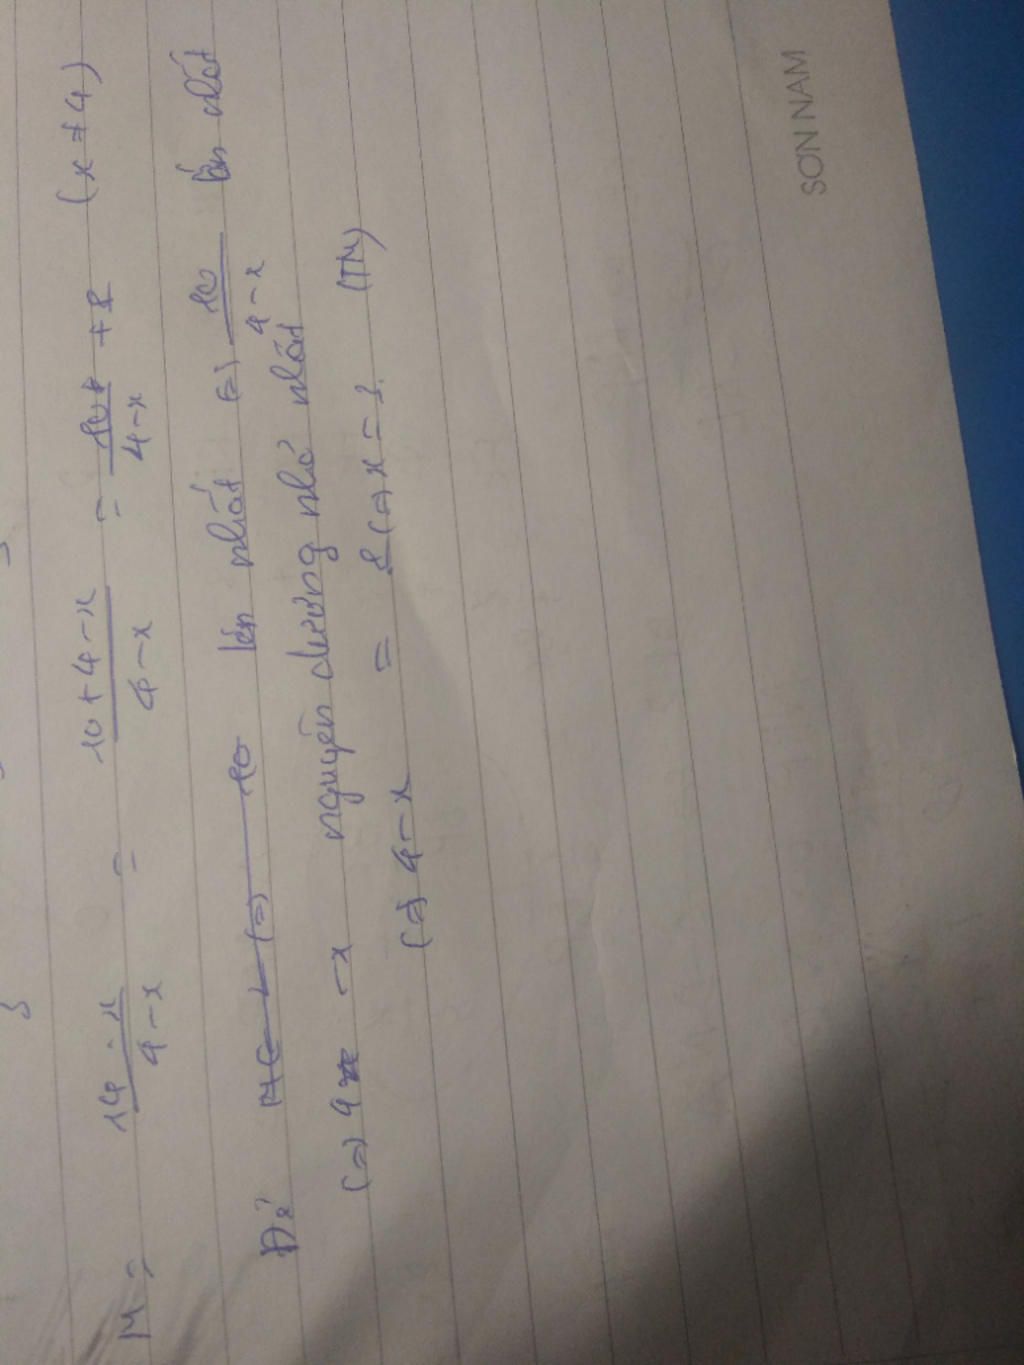 M = 14 - x / 4 - x = 10 + 4 - x / 4 - x = 10 / 4 - x + 1 (x ≠ 4)
Để lớn nhất (=) 10 / 4 - x lớn nhất
(=) 4 - x nguyên dương nhỏ nhất
(=) 4 - x = 1 (=) x = 3 (TM)
SƠN NAM